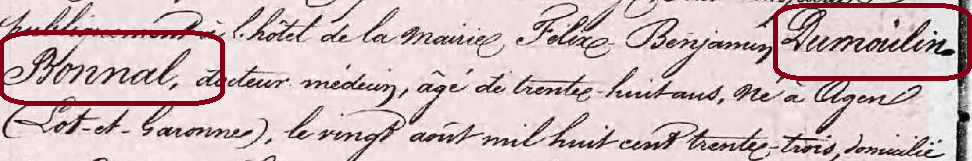 publiquement à l'hôtel de la mairie, Félix Benjamin Dumoulin
Bonnal, docteur médecin, âgé de trente-huit ans, né à Agen
(Lot-et-Garonne), le vingt août mil huit cent trente-trois, domicilié